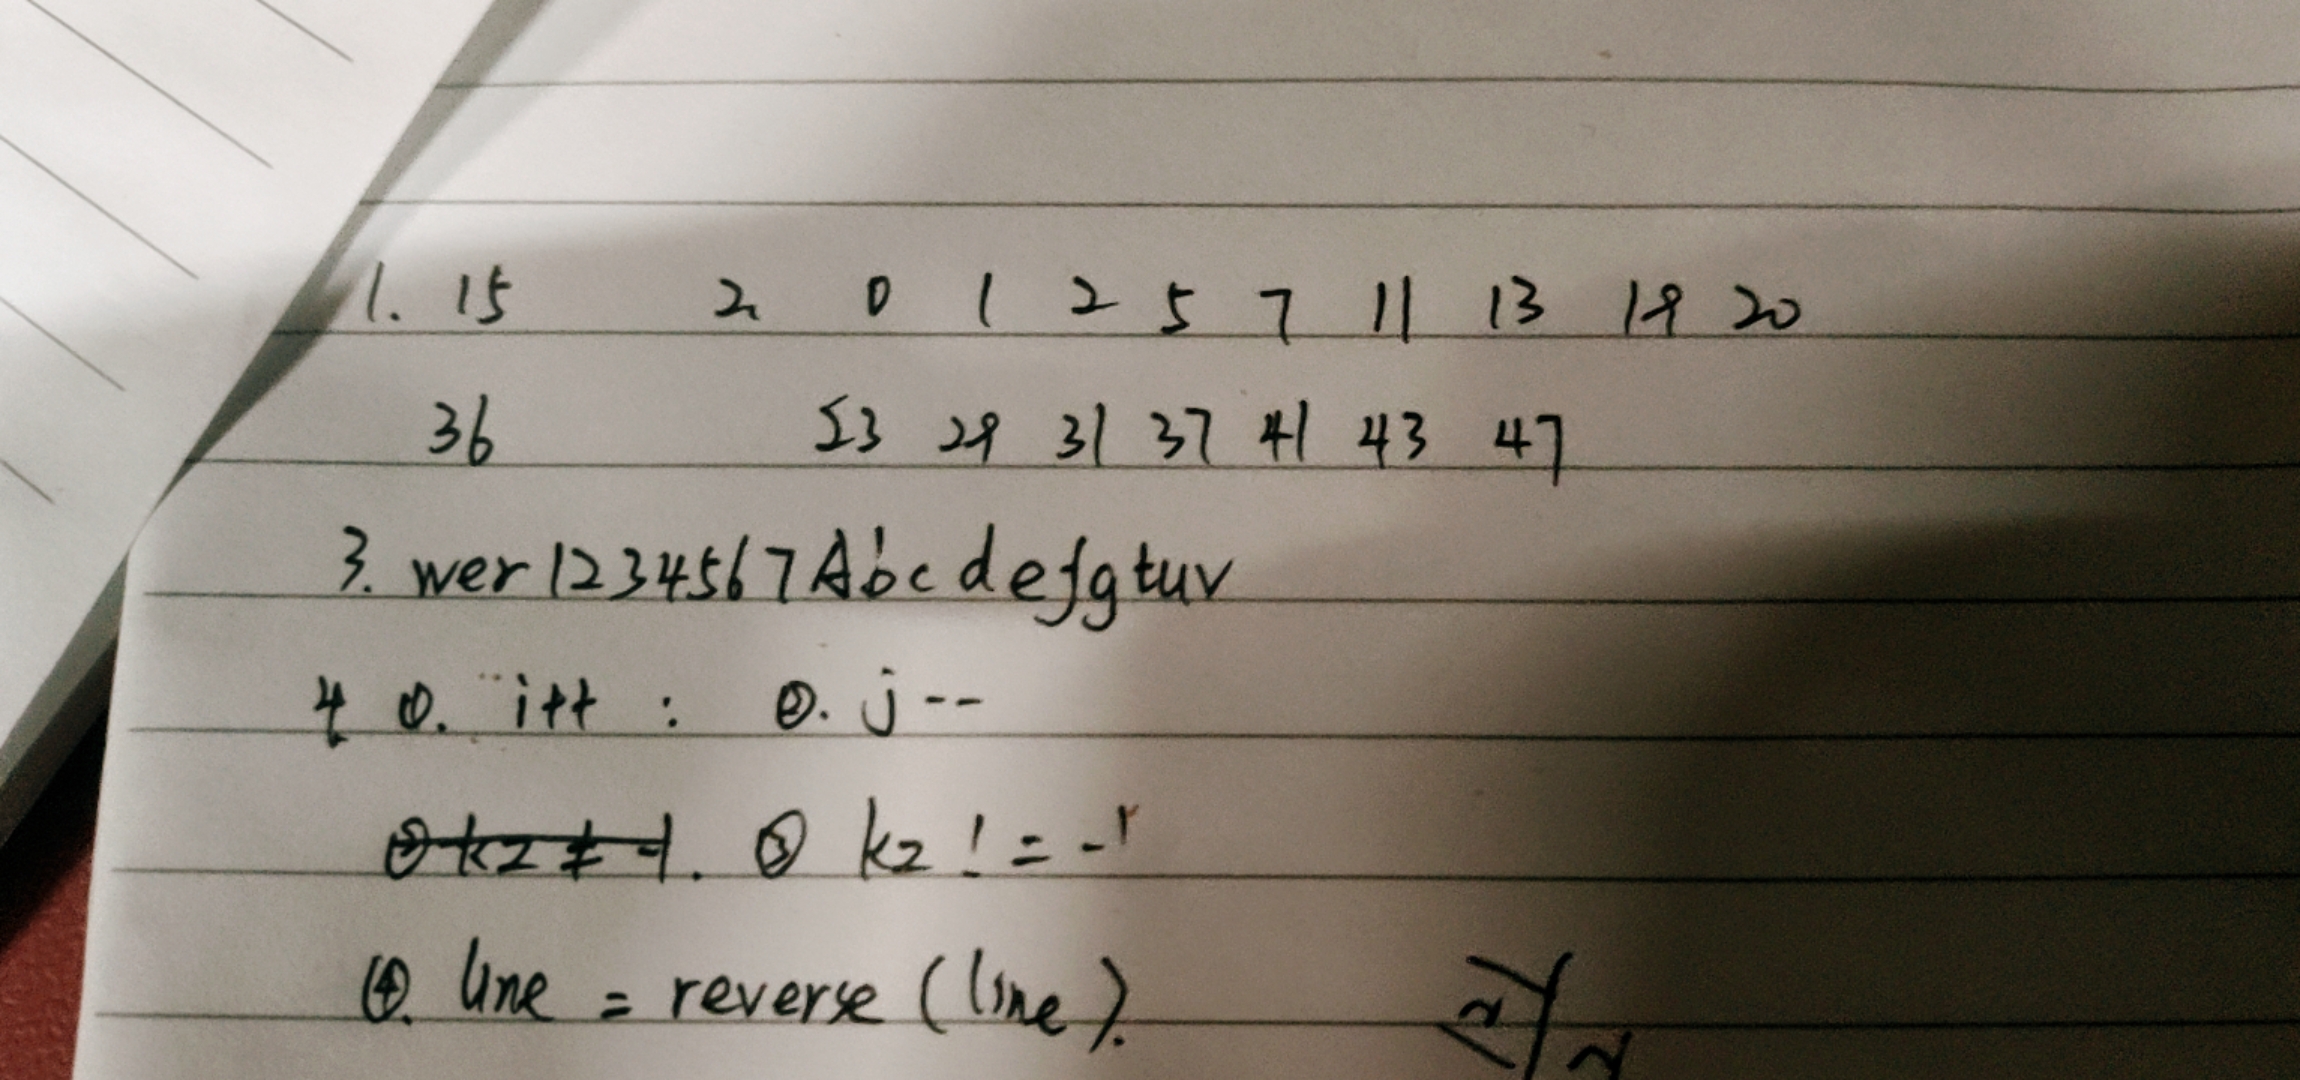 1. 15 2 0 1 2 5 7 11 13 19 20
36 23 29 31 37 41 43 47
3. wer1234567Abcdefgtuv
4 ①. i++ : ②. j--
③ k2 ≠ -1. ③ k2 != -1
④. line = reverse (line).